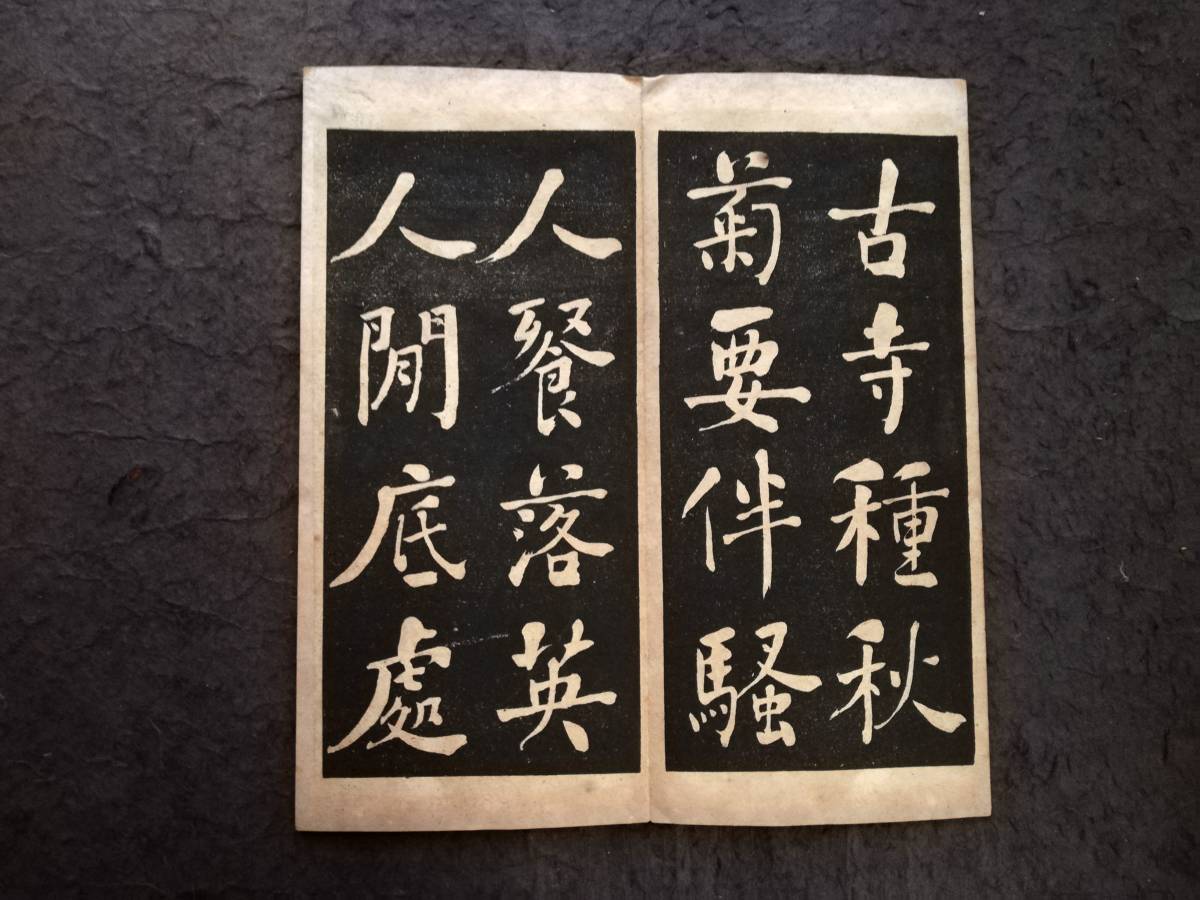 古寺種秋
菊要伴騷
人餐落英
人閒底處